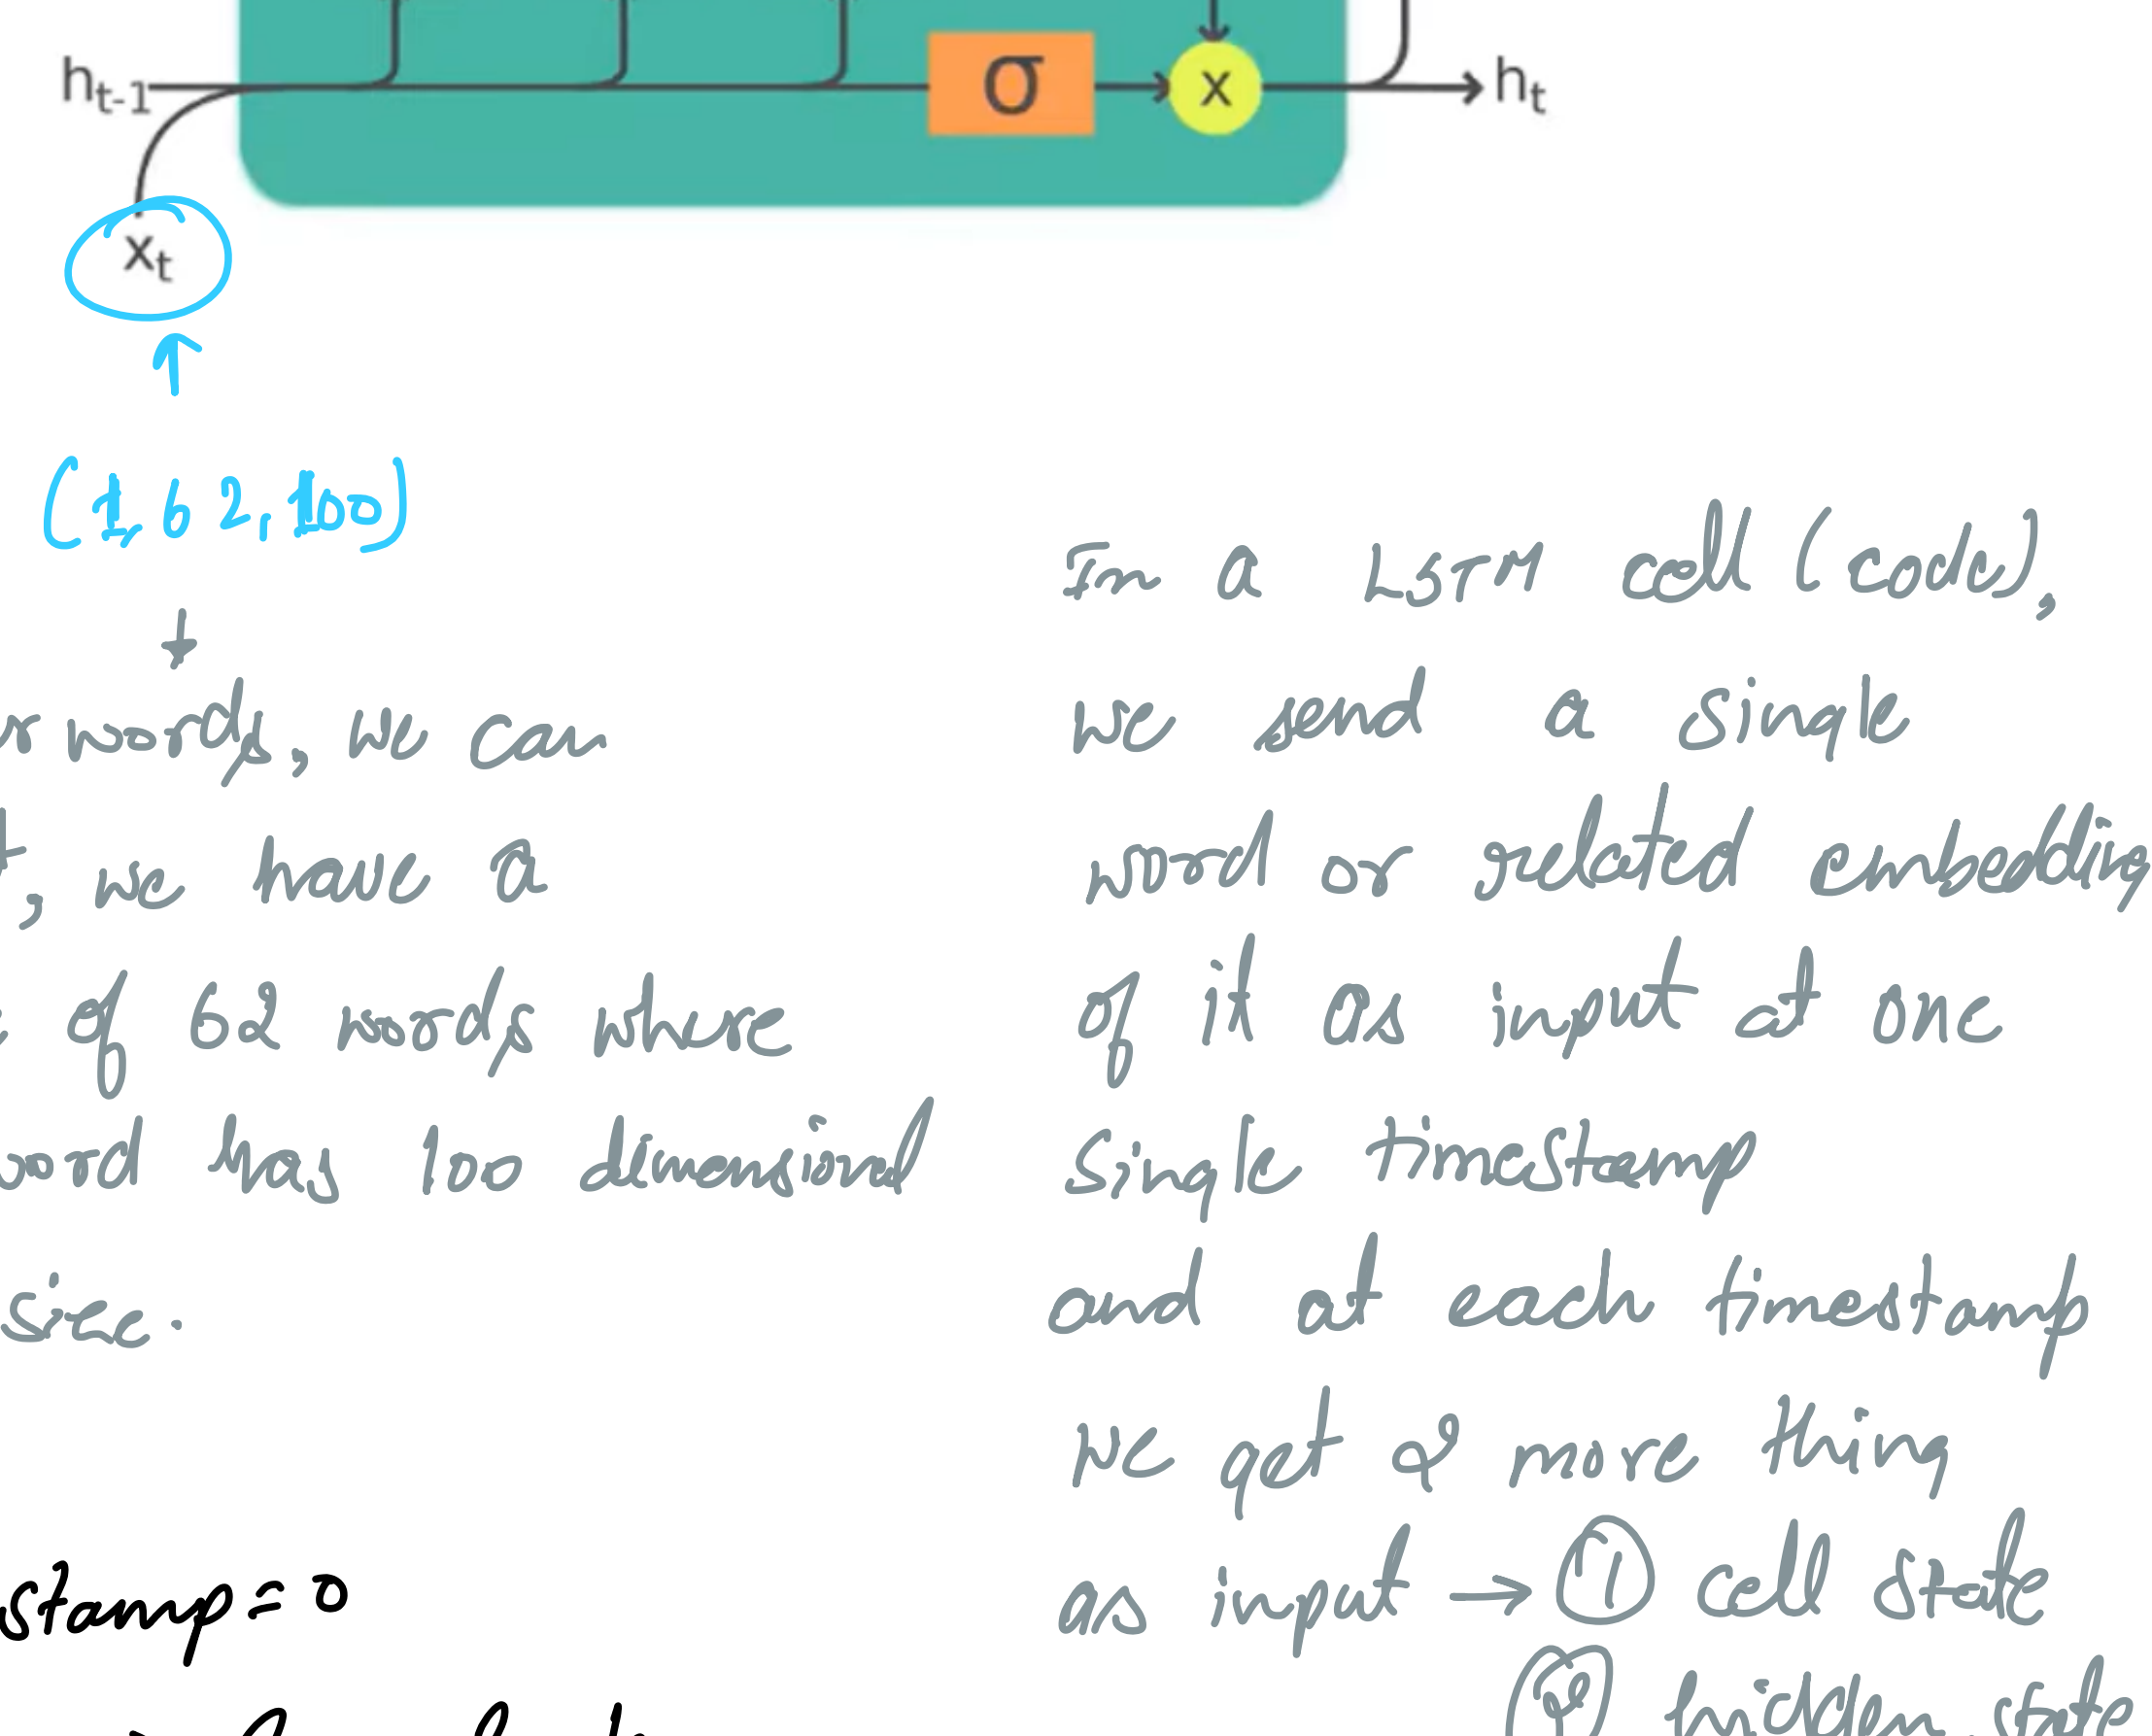 h_{t-1}
σ
x
h_t
x_t
(1, 62, 100)
words, we can
we have a
of 62 words where
word has 100 dimensional
size.
stamp = 0
In a LSTM cell (code),
we send a single
word or related embedding
of it as input at one
single timestamp
and at each timestamp
we get 2 more thing
as input → ① cell state
② hidden state